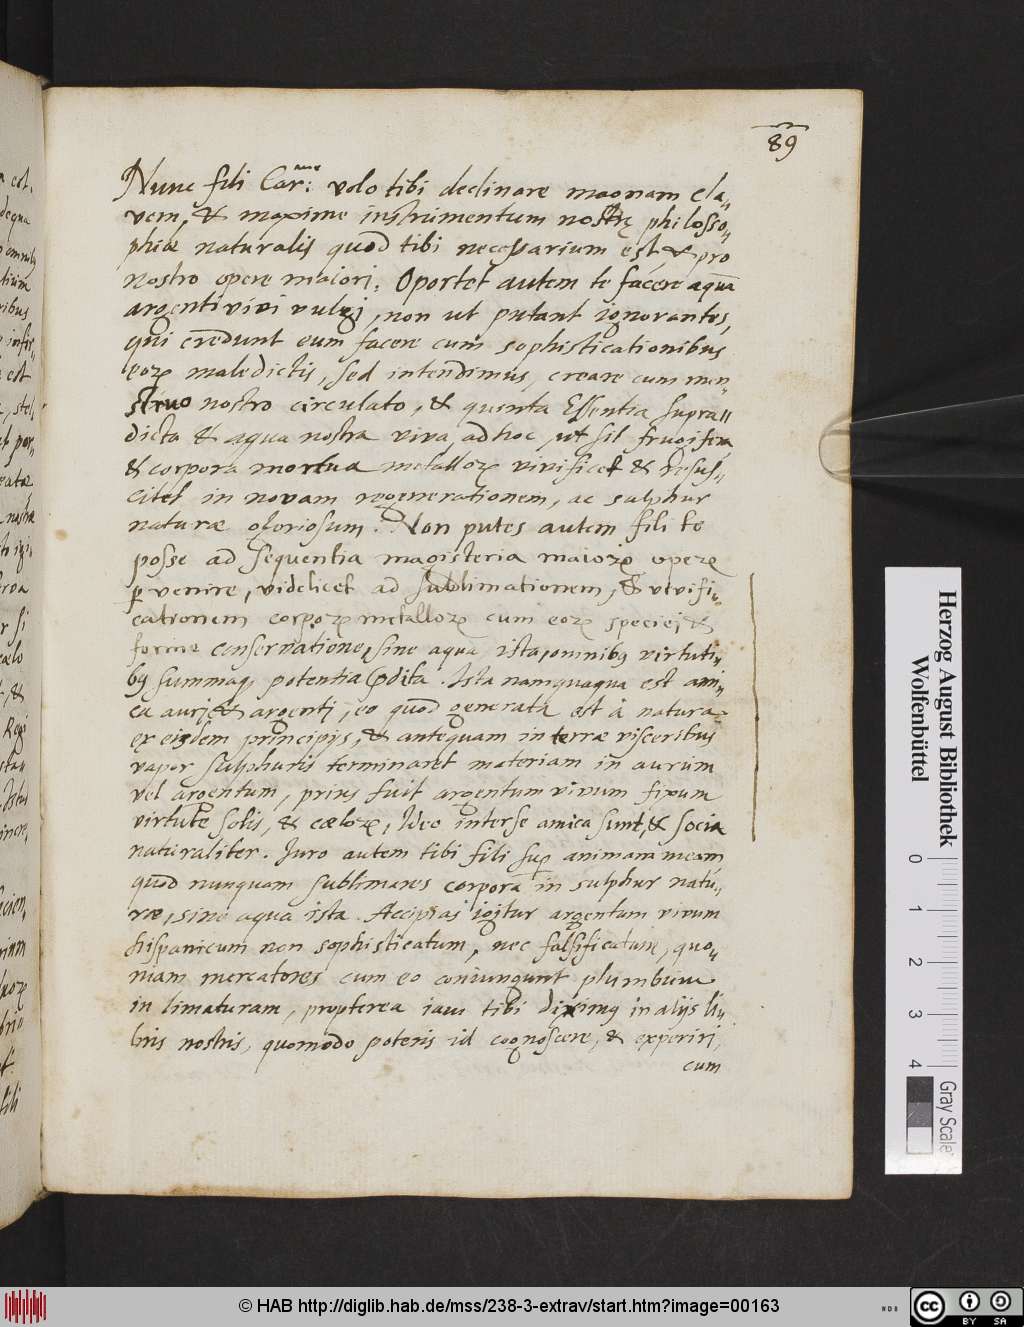 89
Nunc fili Car:me volo tibi declinare magnam cla„
vem, & maxime instrumentum nostrę philosso„
phiæ naturalis quod tibi necessarium est & pro
nostro opere maiori. Oportet autem te facere aquã
argenti vivi vulgi, non ut putant ignorantes,
qui credunt eum facere cum sophisticationibus
eorꝝ maledictis, sed intendimus, creare cum men„
struo nostro circulato, & quenta Essentia supra„
dicta & aqua nostra viva, ad hoc, ut sit frugifera
& corpora mortua metallorꝝ vivificet & Resus„
citet in novam regenerationem, ac sulphur
naturæ gloriosum. Non putes autem fili te
posse ad sequentia magisteria maiorꝝ operꝝ
ꝑvenire, videlicet ad sublimationem, & vivifi„
cationem corporꝝ metallorꝝ cum eorꝝ speciei, &
formæ conservatione, sine aqua ista, omnibꝰ virtuti„
bꝰ summaqꝫ potentia p̃dita. Ista namque aqua est ami„
ca auri, & argenti, eo quod generata est à natura
ex eisdem principijs, & antequam in terræ visceribus
vapor sulphuris terminaret materiam in aurum
vel argentum, prius fuit argentum vivum fixum
virtute solis, & cælorꝝ, Ideo inter se amica sunt, & socia
naturaliter. Iuro autem tibi fili suꝑ animam meam
quod nunquam sublimares corpora in sulphur natu„
ræ, sine aqua ista. Accipias igitur argentum vivum
hispanicum non sophisticatum, nec falsificatum, quo„
niam mercatores cum eo coniungunt plumbum
in limaturam, propterea iam tibi diximꝰ in alijs li„
bris nostris, quomodo poteris id cognoscere, & experiri,
cum
Herzog August Bibliothek
Wolfenbüttel
0 1 2 3 4
Gray Scale
© HAB http://diglib.hab.de/mss/238-3-extrav/start.htm?image=00163
cc BY SA